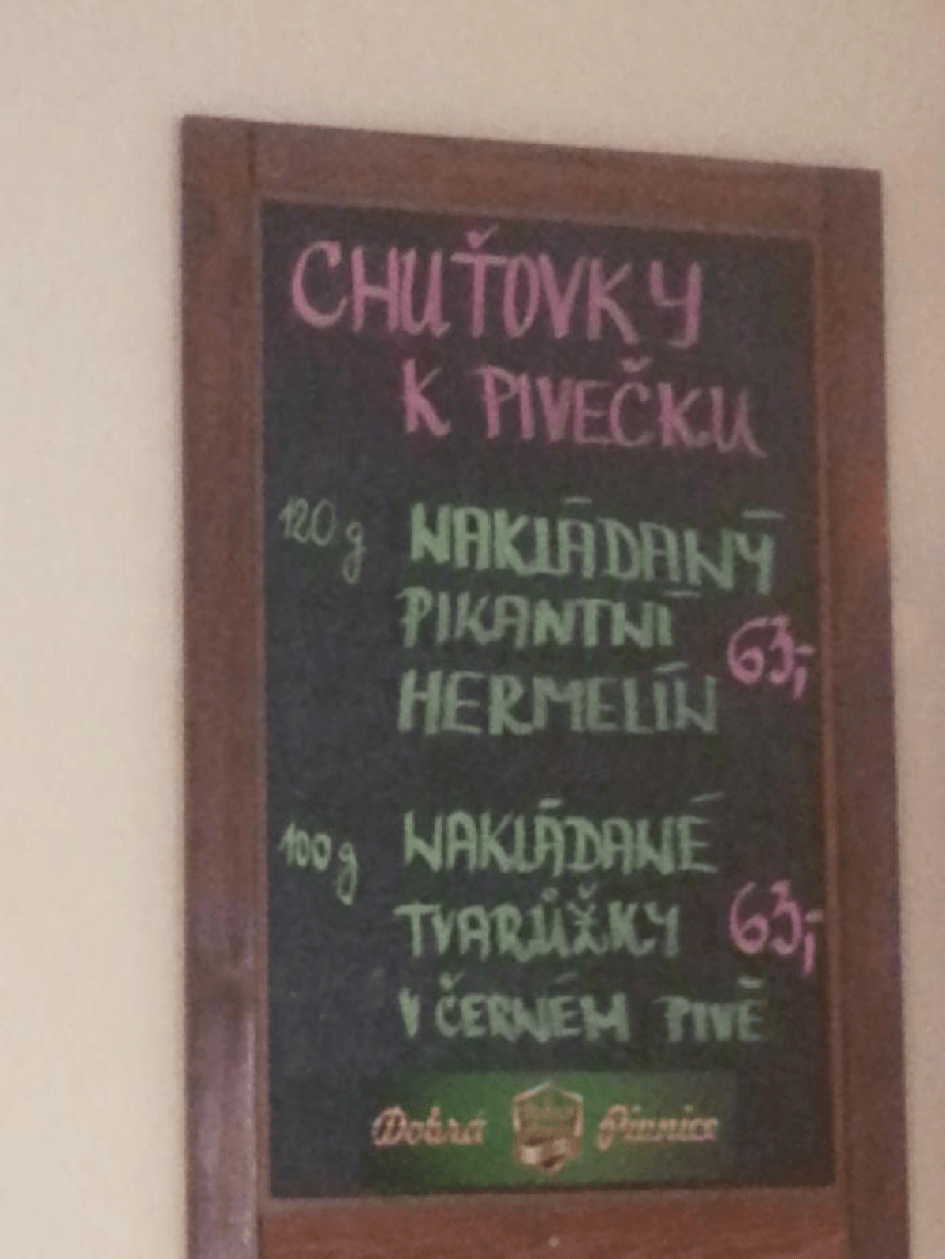 CHUŤOVKY
K PIVEČKU
120 g NAKLÁDANÝ
PIKANTNÍ
63,-
HERMELÍN
100 g NAKLÁDANÉ
TVARŮŽKY 63,-
V ČERNÉM PIVĚ
Dobrá Pivnice